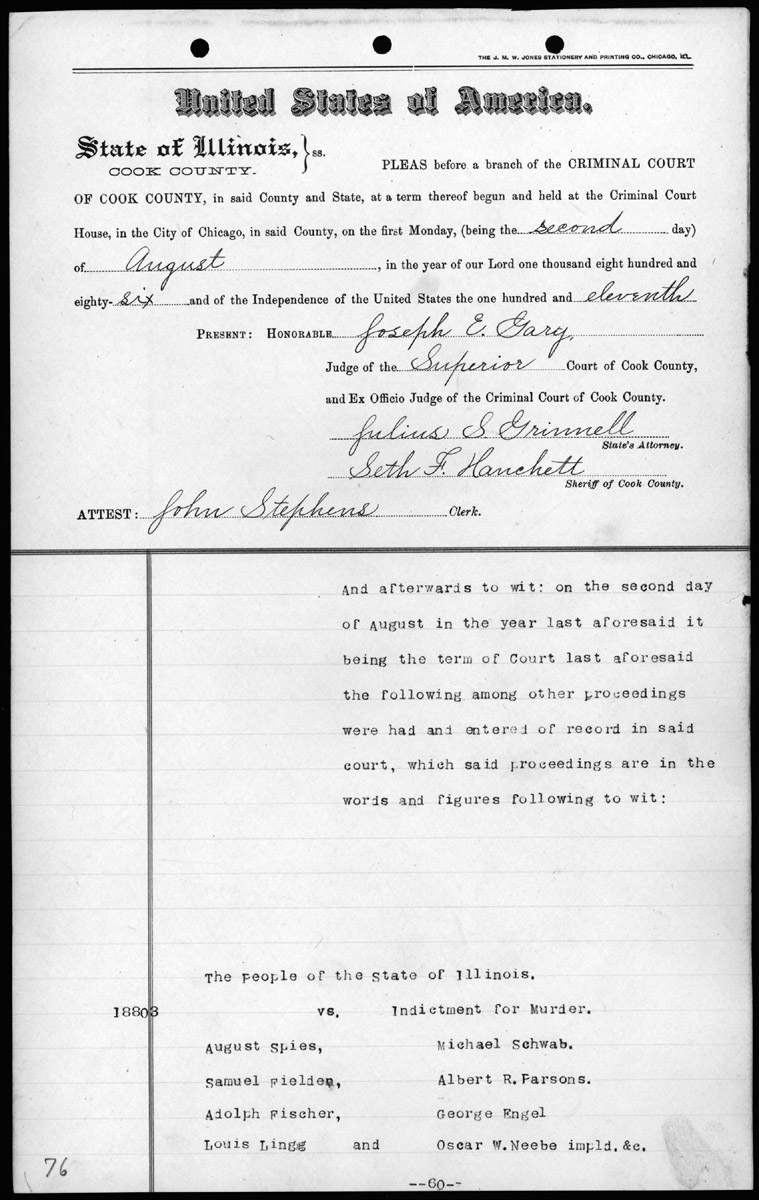 THE J. M. W. JONES STATIONERY AND PRINTING CO., CHICAGO, ILL.
United States of America.
State of Illinois, } ss.
COOK COUNTY.
PLEAS before a branch of the CRIMINAL COURT
OF COOK COUNTY, in said County and State, at a term thereof begun and held at the Criminal Court
House, in the City of Chicago, in said County, on the first Monday, (being the second day)
of August, in the year of our Lord one thousand eight hundred and
eighty-six and of the Independence of the United States the one hundred and eleventh
PRESENT: HONORABLE Joseph E. Gary,
Judge of the Superior Court of Cook County,
and Ex Officio Judge of the Criminal Court of Cook County.
Julius S Grinnell
State's Attorney.
Seth F. Hanchett
Sheriff of Cook County.
ATTEST: John Stephens Clerk.
And afterwards to wit: on the second day
of August in the year last aforesaid it
being the term of Court last aforesaid
the following among other proceedings
were had and entered of record in said
court, which said proceedings are in the
words and figures following to wit:
The People of the State of Illinois.
18803 vs. Indictment for Murder.
August Spies, Michael Schwab.
Samuel Fielden, Albert R. Parsons.
Adolph Fischer, George Engel
Louis Lingg and Oscar W. Neebe impld. &c.
76
--60--